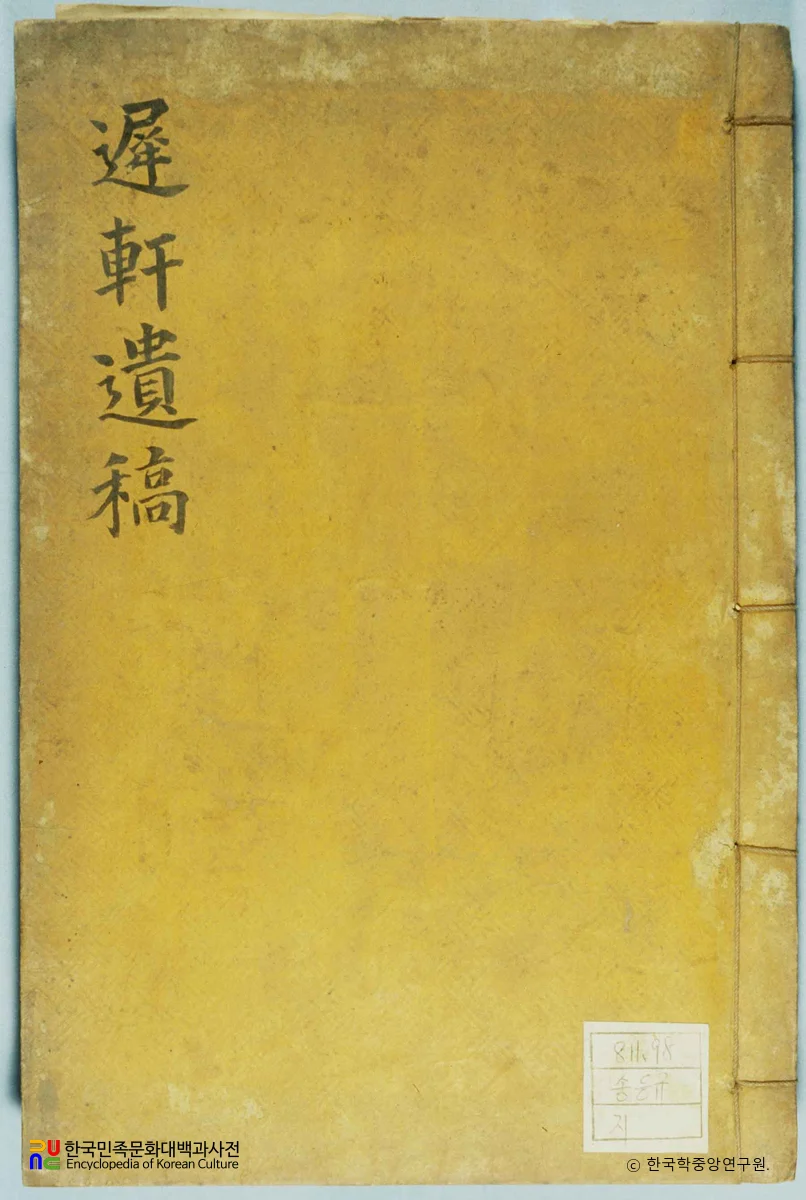 遲軒遺稿
811.98
송응규
지
한국민족문화대백과사전
Encyclopedia of Korean Culture
© 한국학중앙연구원.